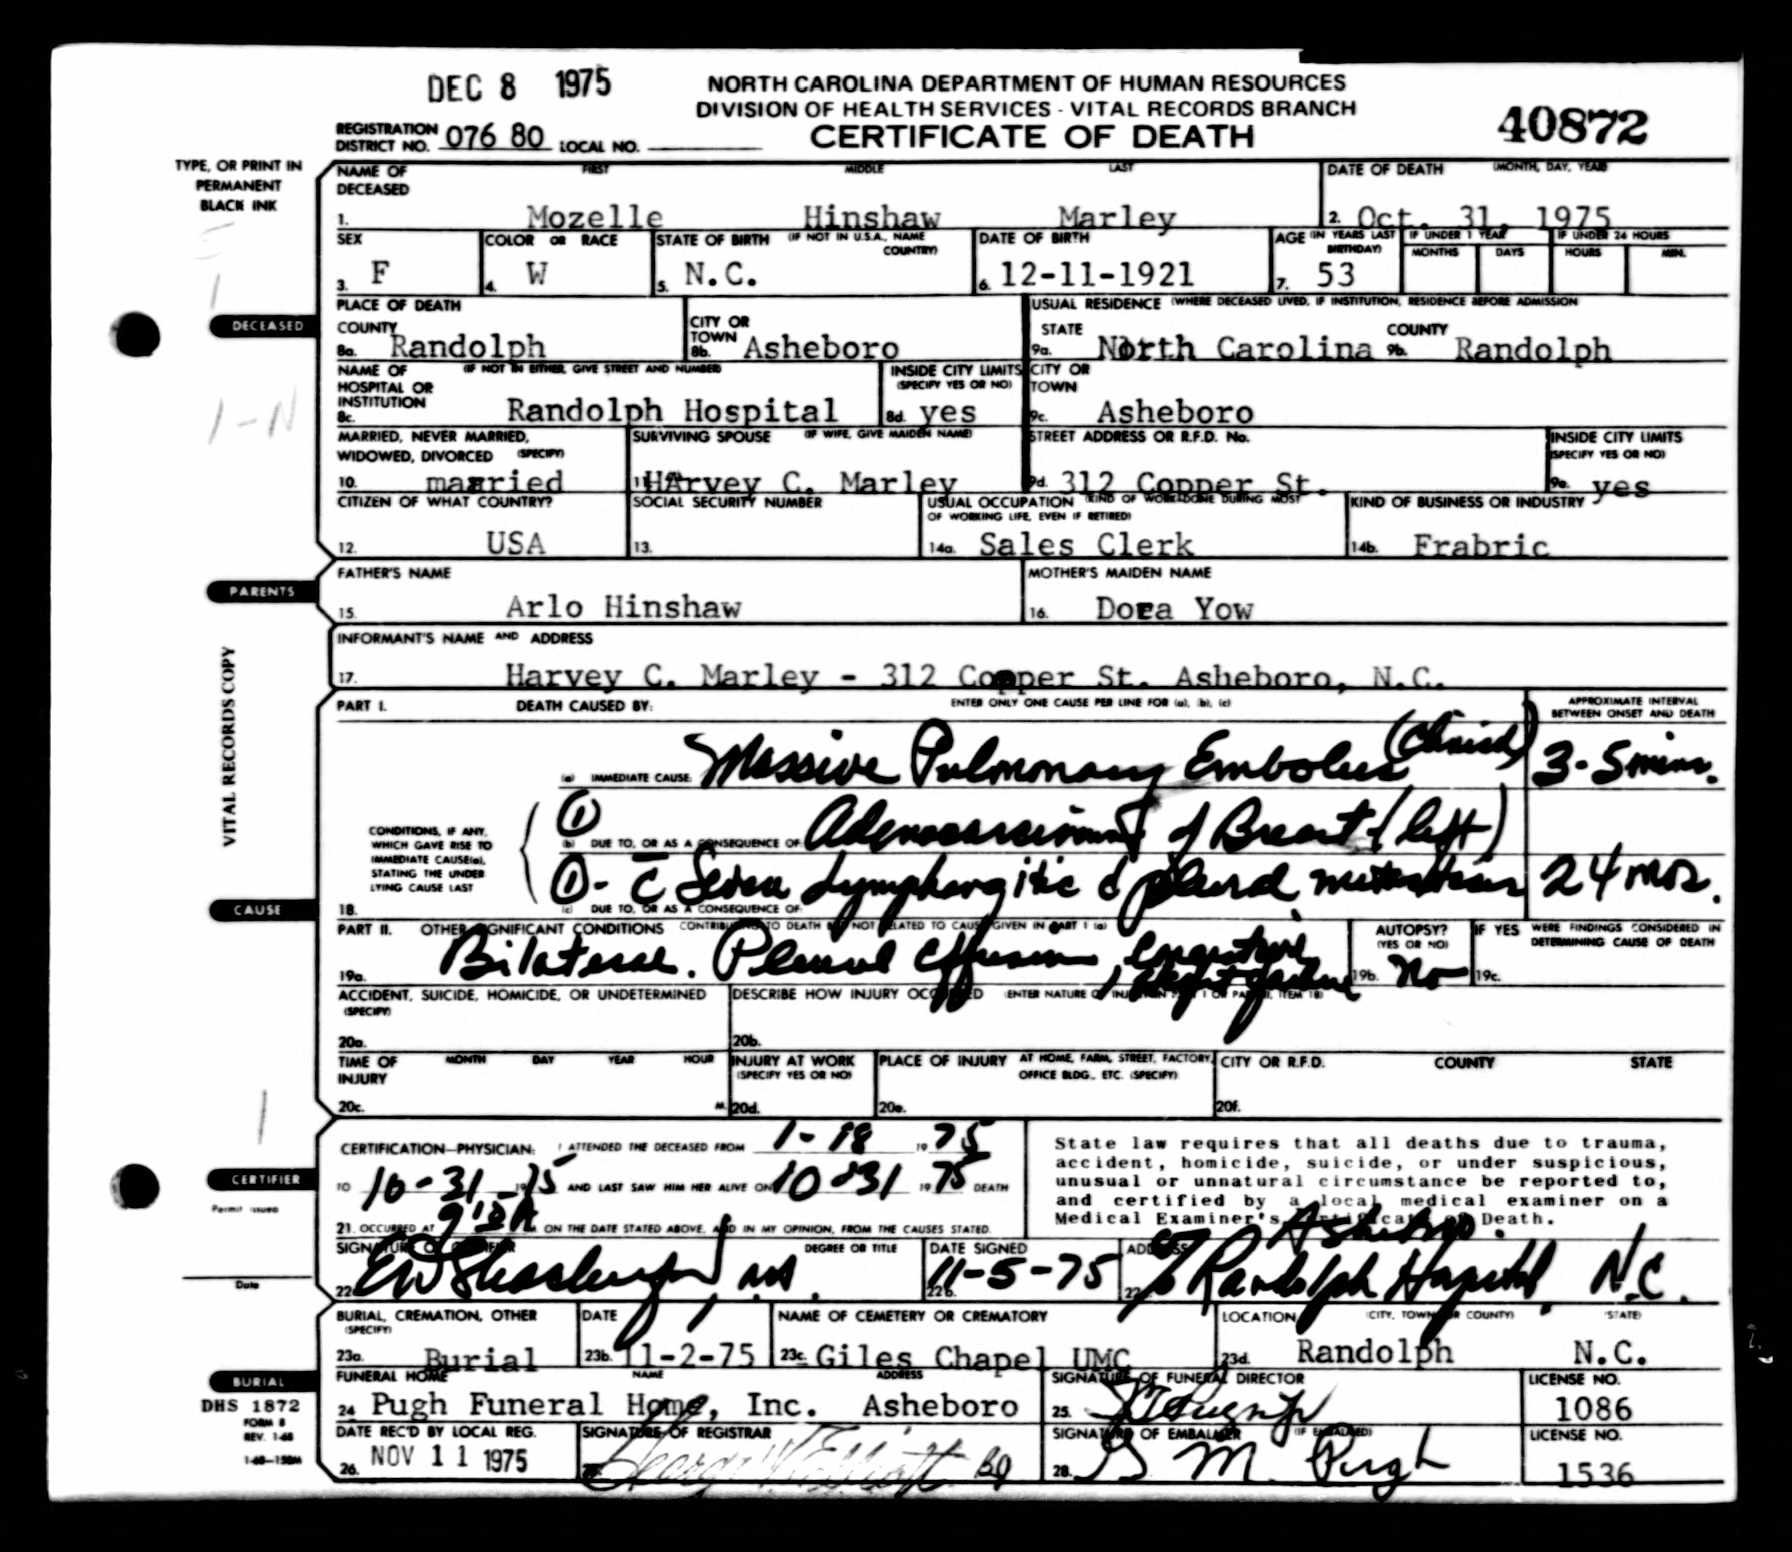 DEC 8 1975
NORTH CAROLINA DEPARTMENT OF HUMAN RESOURCES
DIVISION OF HEALTH SERVICES - VITAL RECORDS BRANCH
CERTIFICATE OF DEATH
40872
REGISTRATION DISTRICT NO. 076 80 LOCAL NO.
TYPE, OR PRINT IN
PERMANENT
BLACK INK
NAME OF DECEASED FIRST MIDDLE LAST
1. Mozelle Hinshaw Marley
DATE OF DEATH (MONTH, DAY, YEAR)
2. Oct. 31, 1975
SEX
3. F
COLOR OR RACE
4. W
STATE OF BIRTH (IF NOT IN U.S.A., NAME COUNTRY)
5. N.C.
DATE OF BIRTH
6. 12-11-1921
AGE (IN YEARS LAST BIRTHDAY)
7. 53
IF UNDER 1 YEAR
MONTHS DAYS
IF UNDER 24 HOURS
HOURS MIN.
DECEASED
PLACE OF DEATH
COUNTY
8a. Randolph
CITY OR TOWN
8b. Asheboro
USUAL RESIDENCE (WHERE DECEASED LIVED, IF INSTITUTION, RESIDENCE BEFORE ADMISSION
STATE
9a. North Carolina
COUNTY
9b. Randolph
NAME OF HOSPITAL OR INSTITUTION (IF NOT IN EITHER, GIVE STREET AND NUMBER)
8c. Randolph Hospital
INSIDE CITY LIMITS (SPECIFY YES OR NO)
8d. yes
CITY OR TOWN
9c. Asheboro
1-N
MARRIED, NEVER MARRIED, WIDOWED, DIVORCED (SPECIFY)
10. married
SURVIVING SPOUSE (IF WIFE, GIVE MAIDEN NAME)
11. HArvey C. Marley
STREET ADDRESS OR R.F.D. No.
9d. 312 Copper St.
INSIDE CITY LIMITS (SPECIFY YES OR NO)
9e. yes
CITIZEN OF WHAT COUNTRY?
12. USA
SOCIAL SECURITY NUMBER
13.
USUAL OCCUPATION (KIND OF WORK DONE DURING MOST OF WORKING LIFE, EVEN IF RETIRED)
14a. Sales Clerk
KIND OF BUSINESS OR INDUSTRY
14b. Frabric
PARENTS
FATHER'S NAME
15. Arlo Hinshaw
MOTHER'S MAIDEN NAME
16. Dora Yow
INFORMANT'S NAME AND ADDRESS
17. Harvey C. Marley - 312 Copper St. Asheboro, N.C.
VITAL RECORDS COPY
PART I. DEATH CAUSED BY: ENTER ONLY ONE CAUSE PER LINE FOR (a), (b), (c)
APPROXIMATE INTERVAL BETWEEN ONSET AND DEATH
(a) IMMEDIATE CAUSE: Massive Pulmonary Embolus (Clinical) 3-5 mins.
CONDITIONS, IF ANY,
WHICH GAVE RISE TO
IMMEDIATE CAUSE(a),
STATING THE UNDER
LYING CAUSE LAST
① (b) DUE TO, OR AS A CONSEQUENCE OF: Adenocarcinoma of Breast (left)
①- c̄ Severe Lymphangitic & pleural metastases 24 mos.
(c) DUE TO, OR AS A CONSEQUENCE OF:
CAUSE
18.
PART II. OTHER SIGNIFICANT CONDITIONS CONTRIBUTING TO DEATH BUT NOT RELATED TO CAUSE GIVEN IN PART I (a)
19a. Bilateral Pleural effusion, congestive heart failure
AUTOPSY? (YES OR NO)
19b. No
IF YES WERE FINDINGS CONSIDERED IN DETERMINING CAUSE OF DEATH
19c.
ACCIDENT, SUICIDE, HOMICIDE, OR UNDETERMINED (SPECIFY)
20a.
DESCRIBE HOW INJURY OCCURRED (ENTER NATURE OF INJURY IN PART I OR PART II, ITEM 18)
20b.
TIME OF INJURY MONTH DAY YEAR HOUR
20c. M.
INJURY AT WORK (SPECIFY YES OR NO)
20d.
PLACE OF INJURY AT HOME, FARM, STREET, FACTORY, OFFICE BLDG., ETC. (SPECIFY)
20e.
CITY OR R.F.D. COUNTY STATE
20f.
CERTIFIER
Permit issued
Date
CERTIFICATION—PHYSICIAN: I ATTENDED THE DECEASED FROM 1-18 19 75
TO 10-31 1975 AND LAST SAW HIM HER ALIVE ON 10-31 19 75 DEATH
21. OCCURRED AT M. ON THE DATE STATED ABOVE, AND IN MY OPINION, FROM THE CAUSES STATED.
State law requires that all deaths due to trauma,
accident, homicide, suicide, or under suspicious,
unusual or unnatural circumstance be reported to,
and certified by a local medical examiner on a
Medical Examiner's Certificate of Death.
SIGNATURE OF CERTIFIER DEGREE OR TITLE
22a.
DATE SIGNED
22b. 11-5-75
ADDRESS
Asheboro.
22c. % Randolph Hospital, N.C.
BURIAL, CREMATION, OTHER (SPECIFY)
23a. Burial
DATE
23b. 11-2-75
NAME OF CEMETERY OR CREMATORY
23c. Giles Chapel UMC
LOCATION (CITY, TOWN OR COUNTY) (STATE)
23d. Randolph N.C.
BURIAL
DHS 1872
FORM 8
REV. 1-68
1-68—150M
FUNERAL HOME NAME ADDRESS
24. Pugh Funeral Home, Inc. Asheboro
SIGNATURE OF FUNERAL DIRECTOR
25.
LICENSE NO.
1086
DATE REC'D BY LOCAL REG.
26. NOV 11 1975
SIGNATURE OF REGISTRAR
SIGNATURE OF EMBALMER (IF EMBALMED)
28. G M. Pugh
LICENSE NO.
1536